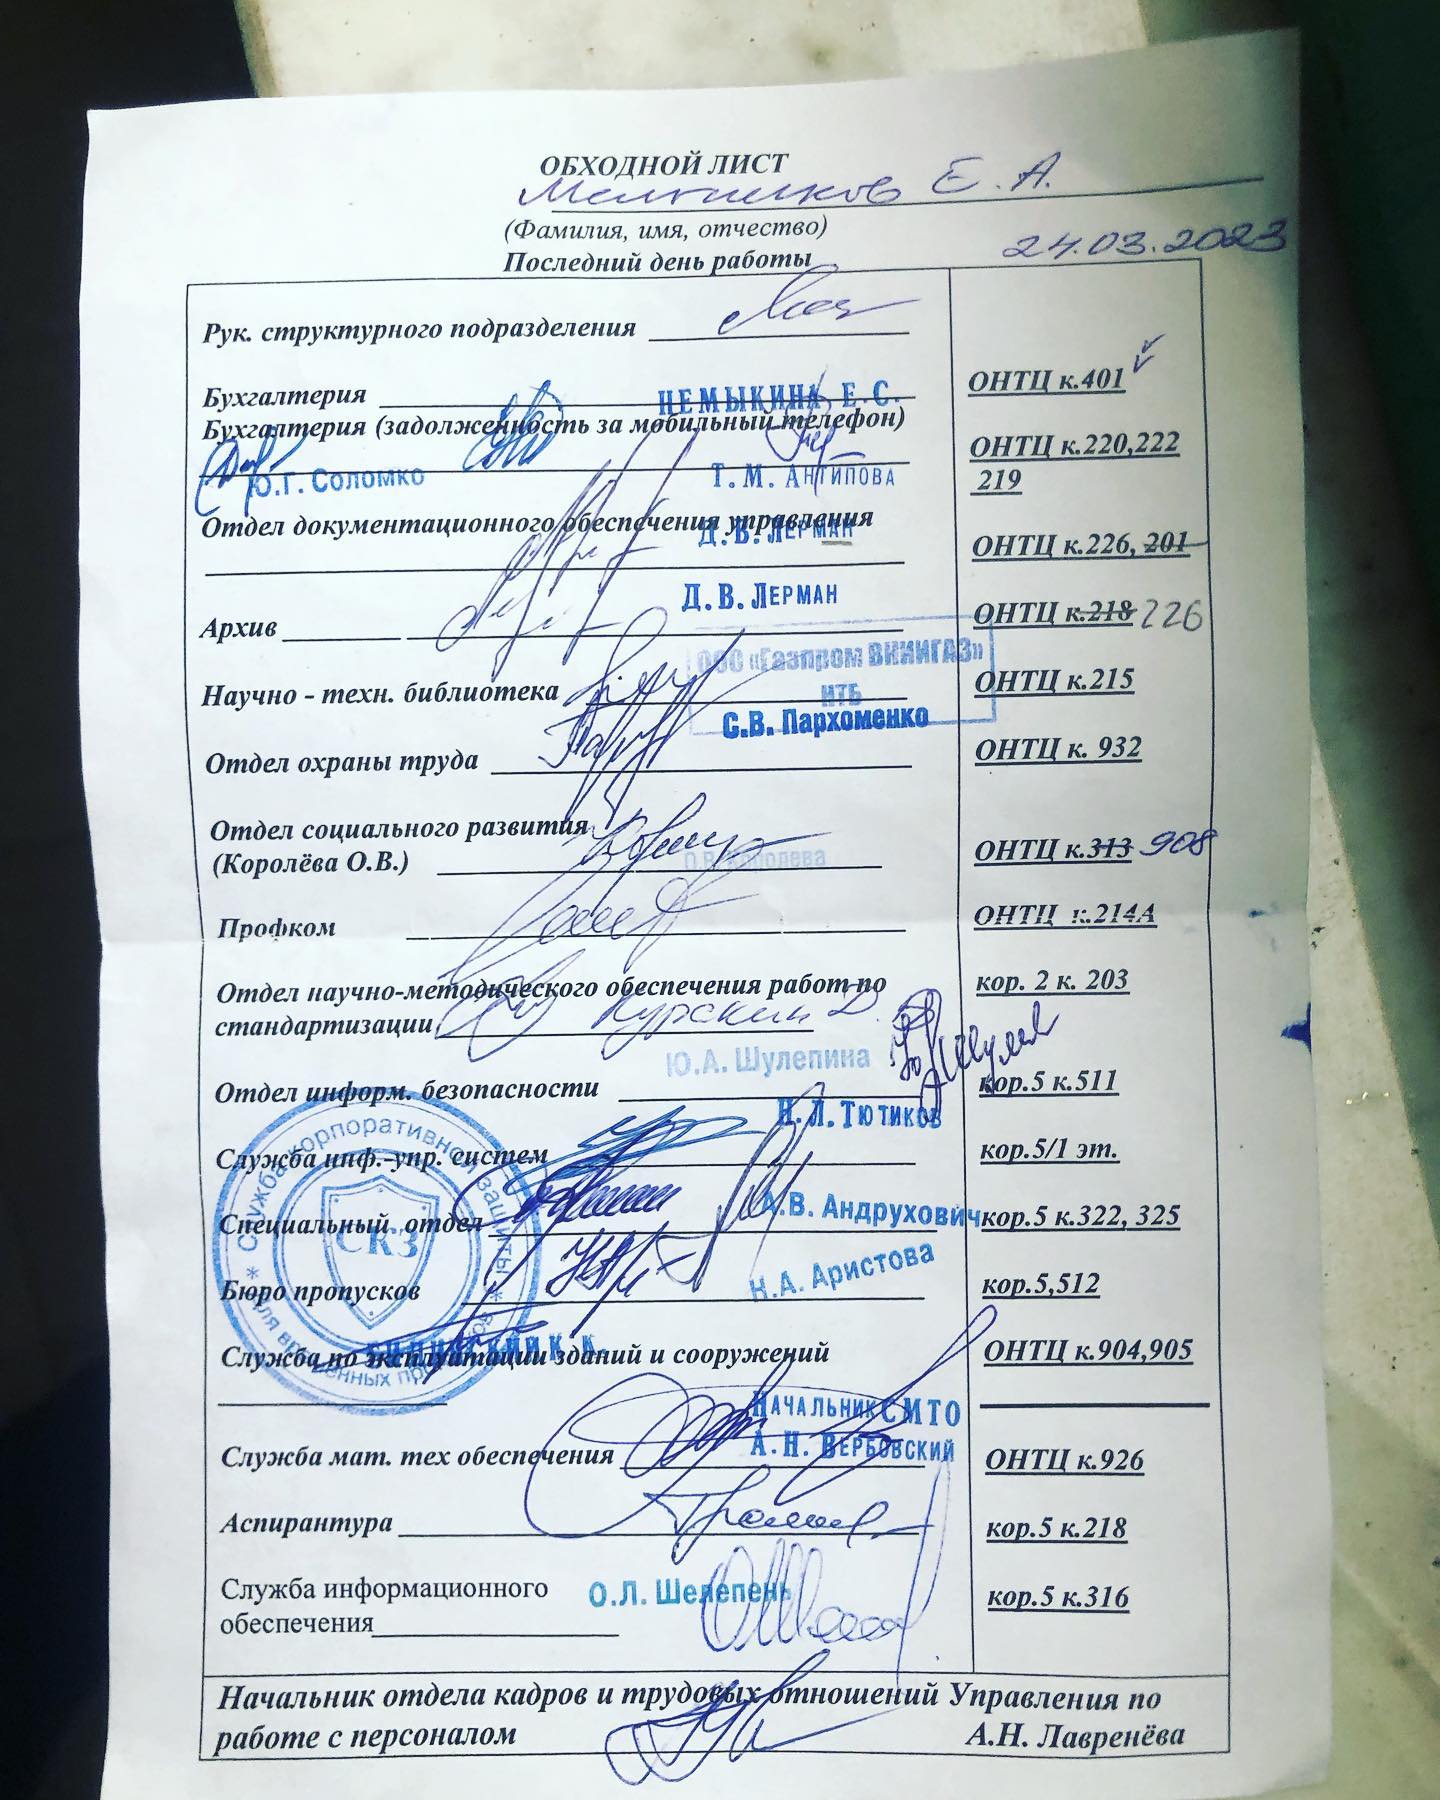 ОБХОДНОЙ ЛИСТ
Мельников Е. А.
(Фамилия, имя, отчество)
24.03.2023
Последний день работы
Рук. структурного подразделения
Бухгалтерия НЕМЫКИНА Е.С. ОНТЦ к.401
Бухгалтерия (задолженность за мобильный телефон)
ОНТЦ к.220,222
Ю.Г. Соломко Т.М. Антипова 219
Отдел документационного обеспечения управления
Д.В. Лерман ОНТЦ к.226, 201
Д.В. Лерман
Архив ОНТЦ к.218 226
ООО «Газпром ВНИИГАЗ»
Научно - техн. библиотека ОНТЦ к.215
НТБ
С.В. Пархоменко
Отдел охраны труда ОНТЦ к. 932
Отдел социального развития
(Королёва О.В.) О.В. Королева ОНТЦ к.313 908
Профком ОНТЦ к.214А
Отдел научно-методического обеспечения работ по кор. 2 к. 203
стандартизации Курскин Д.
Ю.А. Шулепина
Отдел информ. безопасности кор.5 к.511
Н.Л. Тютиков
Служба инф.-упр. систем кор.5/1 эт.
Специальный отдел А.В. Андрухович кор.5 к.322, 325
Бюро пропусков Н.А. Аристова кор.5,512
Служба корпоративной защиты * Для временных пропусков *
СКЗ
Служба по эксплуатации зданий и сооружений ОНТЦ к.904,905
Начальник СМТО
А.Н. Вербовский
Служба мат. тех обеспечения ОНТЦ к.926
Аспирантура кор.5 к.218
Служба информационного О.Л. Шелепень кор.5 к.316
обеспечения
Начальник отдела кадров и трудовых отношений Управления по
работе с персоналом А.Н. Лавренёва